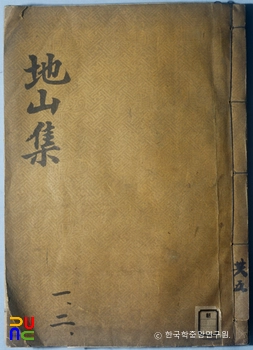 地山集
一、二、
共五
ⓒ 한국학중앙연구원